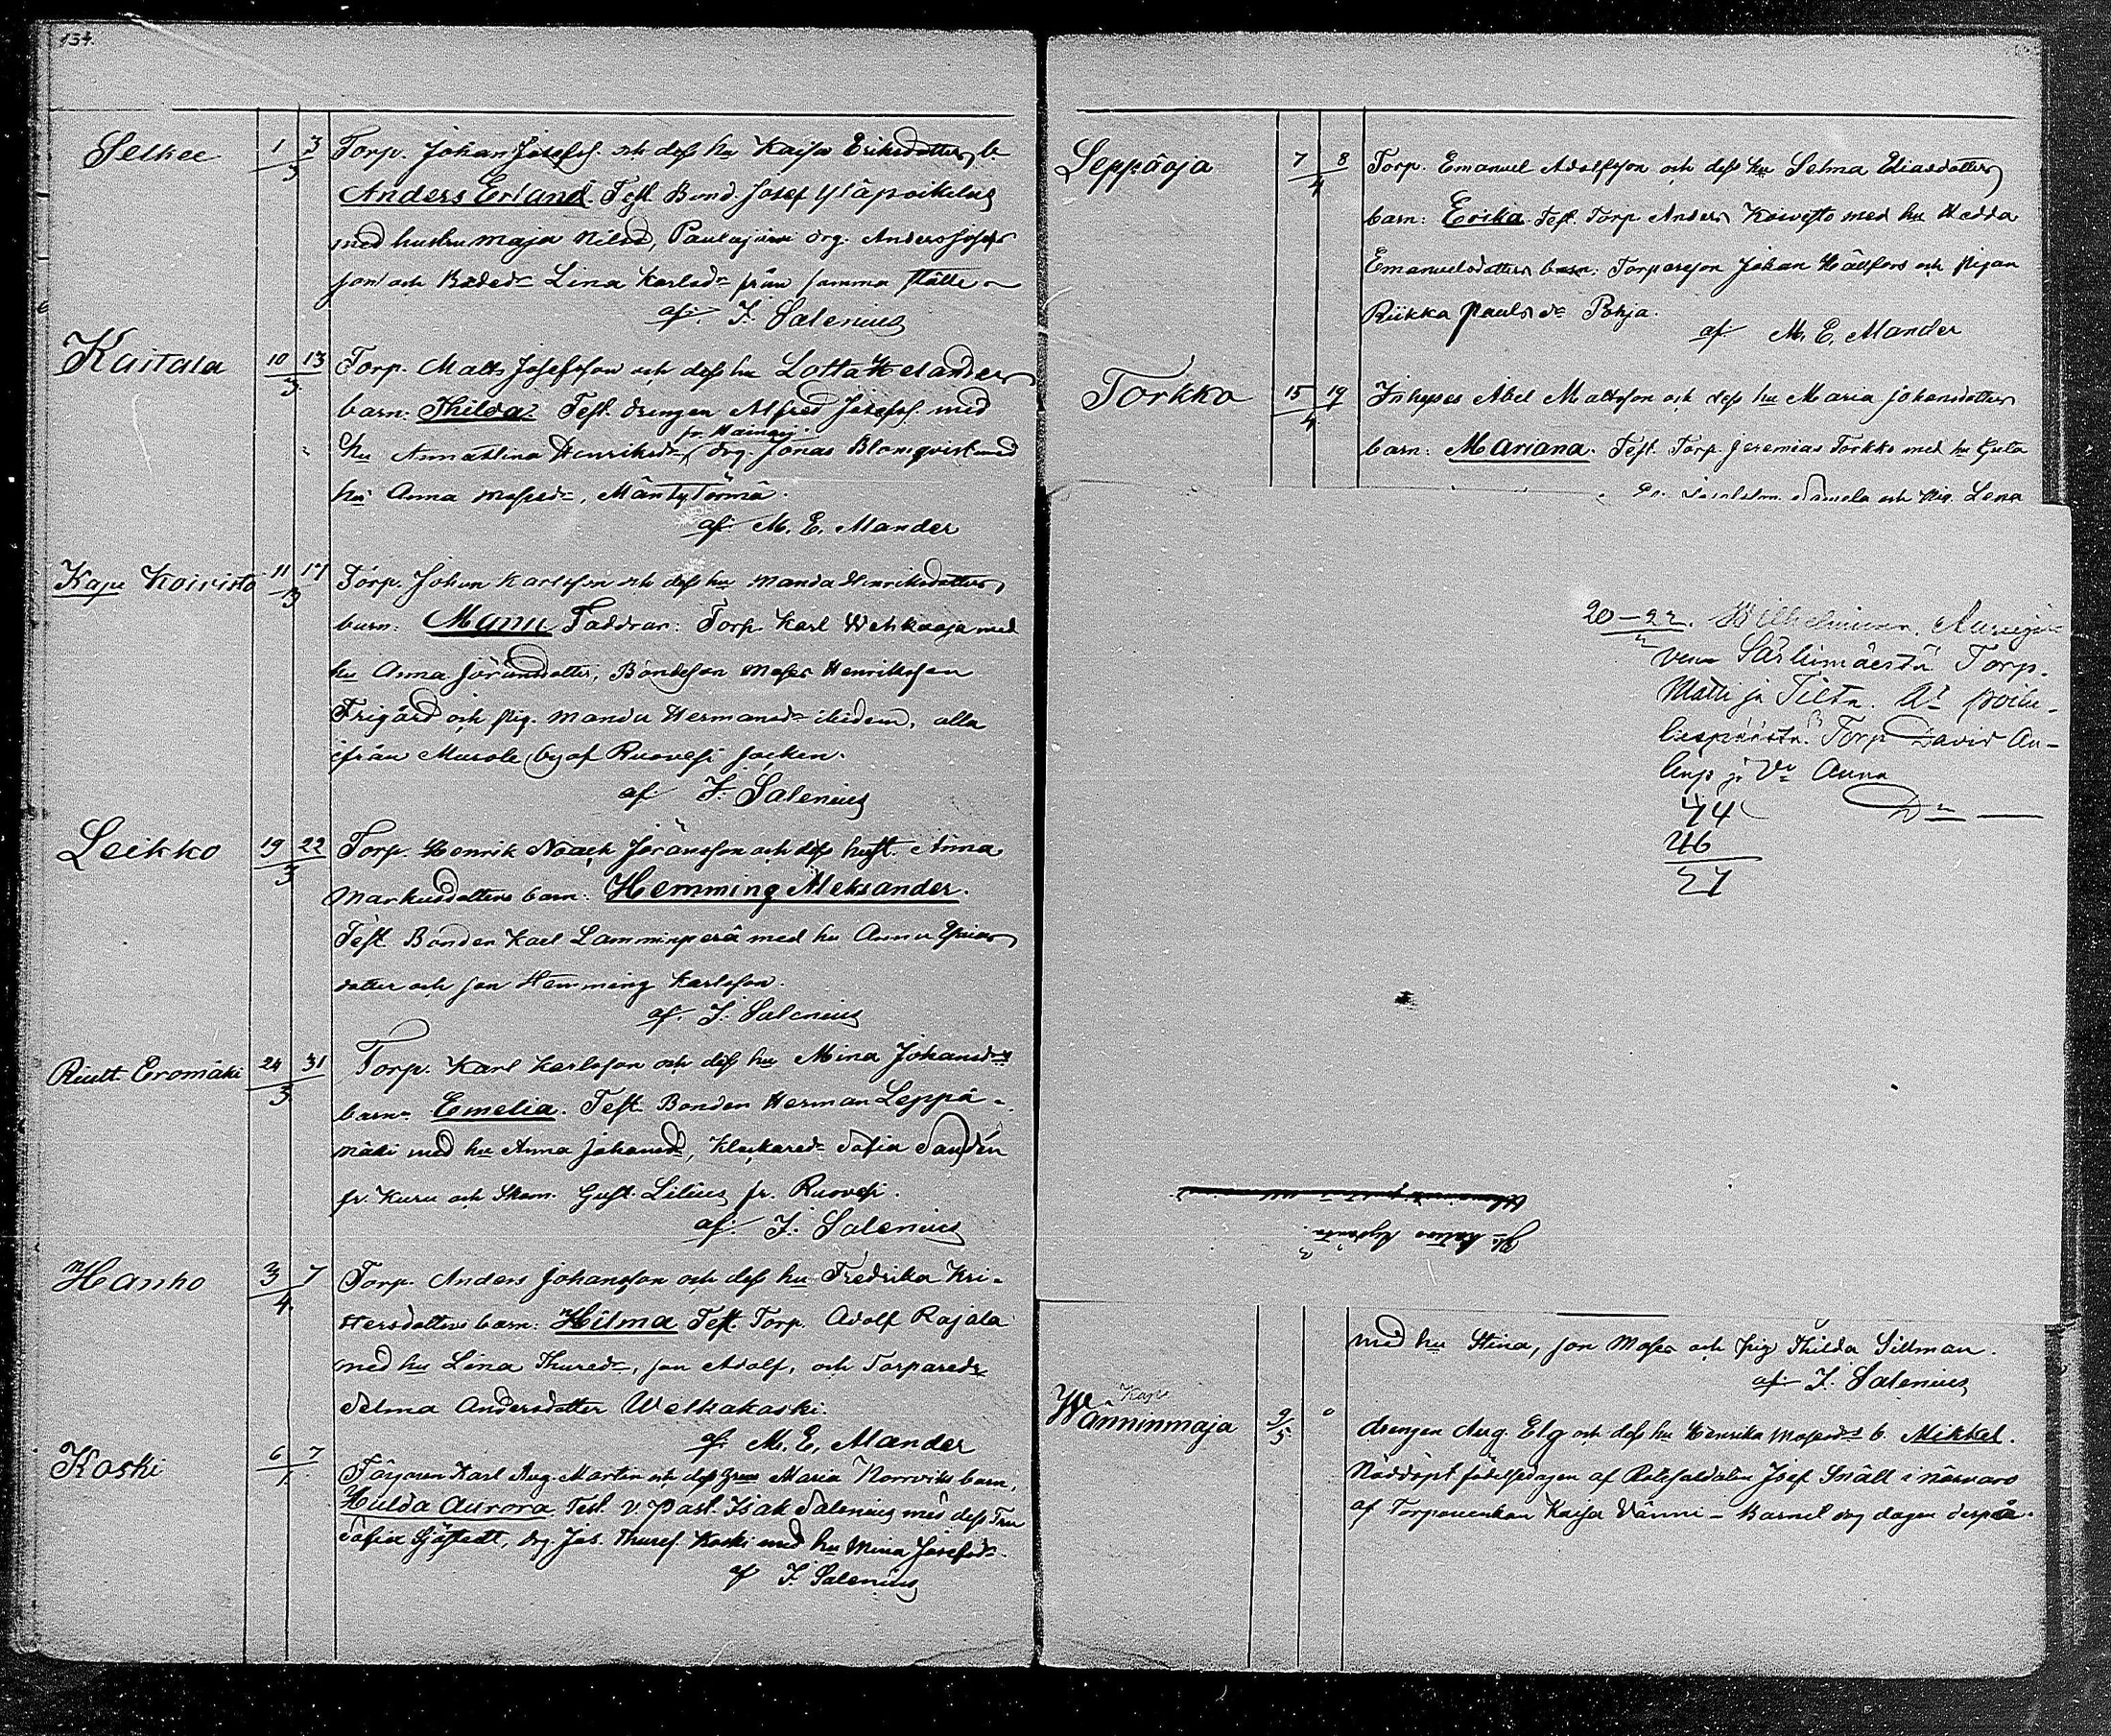 134.
Selkee 1 3/3 Torp. Johan Josefss. och dess hu Kajsa Eriksdotters b.
Anders Erland. Test. Bond. Josef Yläpoikelus
med hustru Maja Nilsd, Paulajärvi drg. Anders Josefs
son och Bdedr Lina Karlsdr från samma ställe
af. I. Salenius
Kaitala 10 13/3 Torp. Matts Josefsson och dess hu Lotta Helanders
barn: Thilda. Test. drengen Alfred Josefss. med
fr. Hainarj.
hu Annastina Henriksdr, drg. Jonas Blomqvist med
hu Anna Mosesdr, Mäntytörmä.
af. M. E. Mander
Kape Koivisto 11 17/3 Torp. Johan Karlsson och dess hu Manda Henriksdotters
barn: Manu Faddrar: Torp. Karl Wehkaoja med
hu Anna Jöransdotter, Bondeson Moses Henriksson
Frigård och pig. Manda Hermansdr ibidem, alla
ifrån Murole by af Ruovesi socken.
af. I. Salenius
Leikko 19 22/3 Torp. Henrik Noach Jöransson och dess hust. Anna
Markusdotters barn: Hemming Aleksander.
Test. Bonden Karl Lamminperä med hu Anna
dotter och son Hemming Karlsson.
af. I. Salenius
Riutt. Eromäki 24 31/3 Torp. Karl Karlsson och dess hu Mina Johansdrs
barn Emelia. Test. Bonden Herman Leppä-
mäki med hu Anna Johansdr, Klockaredr Sofia Sandén
fr. Kuru och Skom. Gust. Lilius fr. Ruovesi.
af. I. Salenius
Hanho 3 7/4. Torp. Anders Johansson och dess hu Fredrika Kri-
stersdotters barn: Hilma Test. Torp. Adolf Rajala
med hu Lina Thuredr, son Adolf, och Torparedr
Selma Andersdotter Welhakoski.
af. M. E. Mander
Koski 6 7/1. Färgaren Karl Aug. Martin och dess fru Maria Norrviks barn,
Hulda Aurora. Test. V. Past. Isak Salenius med dess Fru
Sofia Sjöstedt, drg. Jos. Thuresf. Koski med hu Mina Josefsdr.
af I. Salenius
Leppäoja 7 8/4 Torp. Emanuel Adolfsson och dess hu Selma Eliasdotters
barn: Erika. Test. Torp. Anders Koivisto med hu Hedda
Emanuelsdotters barn: Torpareson Johan Hällfors och pigan
Riikka Pauls dr Pohja.
af M. E. Mander
Torkko 15 19/4. Inhyses Abel Mattsson och dess hu Maria Johansdotters
barn: Mariana. Test. Torp. Jeremias Torkko med hu Greta
och Pig. Lena
20-22. Wilhelmiina.
Särkimäestä Torp.
Matti ja Tilta.
Torp David An-
ja Vo Anna
44
46
27
med hu Stina, son Moses och pig. Thilda Sillman.
af I. Salenius
Kape
Wänninmaja 9/5 drengen Aug. Elg och dess hu Henrika Mosesdrs b. Mikkel.
Nöddöpt födelsedagen af Rotesoldaten Josef Snäll i närvaro
af Torpareenkan Kajsa Vänni - Barnet dog dagen derpå.